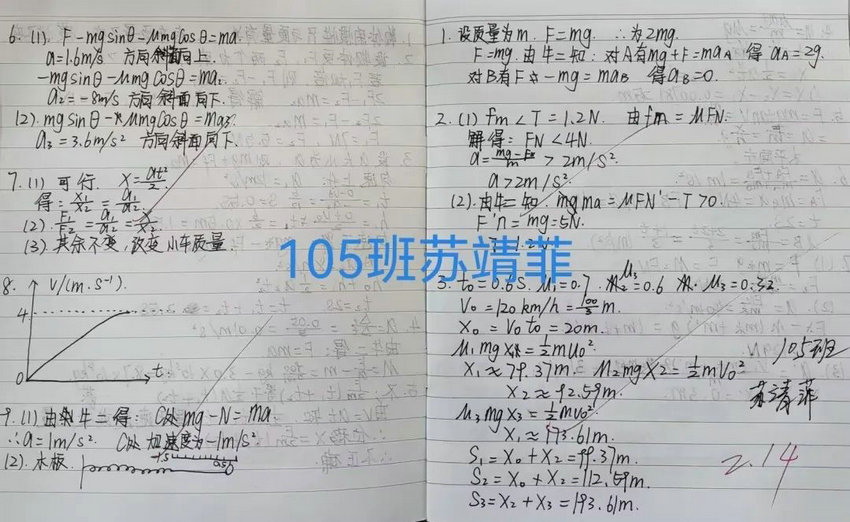 6. (1) F-mgsinθ-μmgcosθ=ma.
a=1.6m/s² 方向斜面向上.
-mgsinθ-μmgcosθ=ma₂
a₂=-8m/s 方向斜面向下.
(2). mgsinθ-μmgcosθ=ma₃.
a₃=3.6m/s² 方向斜面向下.
7. (1) 可行. X=at²/2.
得: x₁/x₂=a₁/a₂.
(2). F₁/F₂=a₁/a₂
(3) 其余不变,改变小车质量
8. V/(m·s⁻¹).
4
0 t
9. (1) 由牛二得: mg-N=ma.
∴a=1m/s². 加速度为-1m/s²
(2). 木板.
1. 设质量为m. F=mg. ∴为2mg.
F=mg. 由牛二知: 对A有mg+F=maA 得aA=2g.
对B有F-mg=maB 得aB=0.
2. (1) fm<T=1.2N. 由fm=μFN.
解得: FN<4N.
>2m/s².
a>2m/s².
(2). 由牛二知. ma=μFN'-T>0.
F'n=mg=5N.
105班苏靖菲
3. t₀=0.6s. μ₁=0.7. μ₂=0.6 μ₃=0.32.
V₀=120km/h=100/3m.
X₀=V₀t₀=20m.
μ₁mgx₁=½mv₀².
X₁≈79.37m. μ₂mgX₂=½mV₀²
X₂≈92.59m.
μ₃mgx₃=½mv₀².
X₁≈173.61m.
S₁=X₀+X₂=99.37m.
S₂=X₀+X₂=112.59m.
S₃=X₂+X₃=193.61m.
105班
苏靖菲
2.14